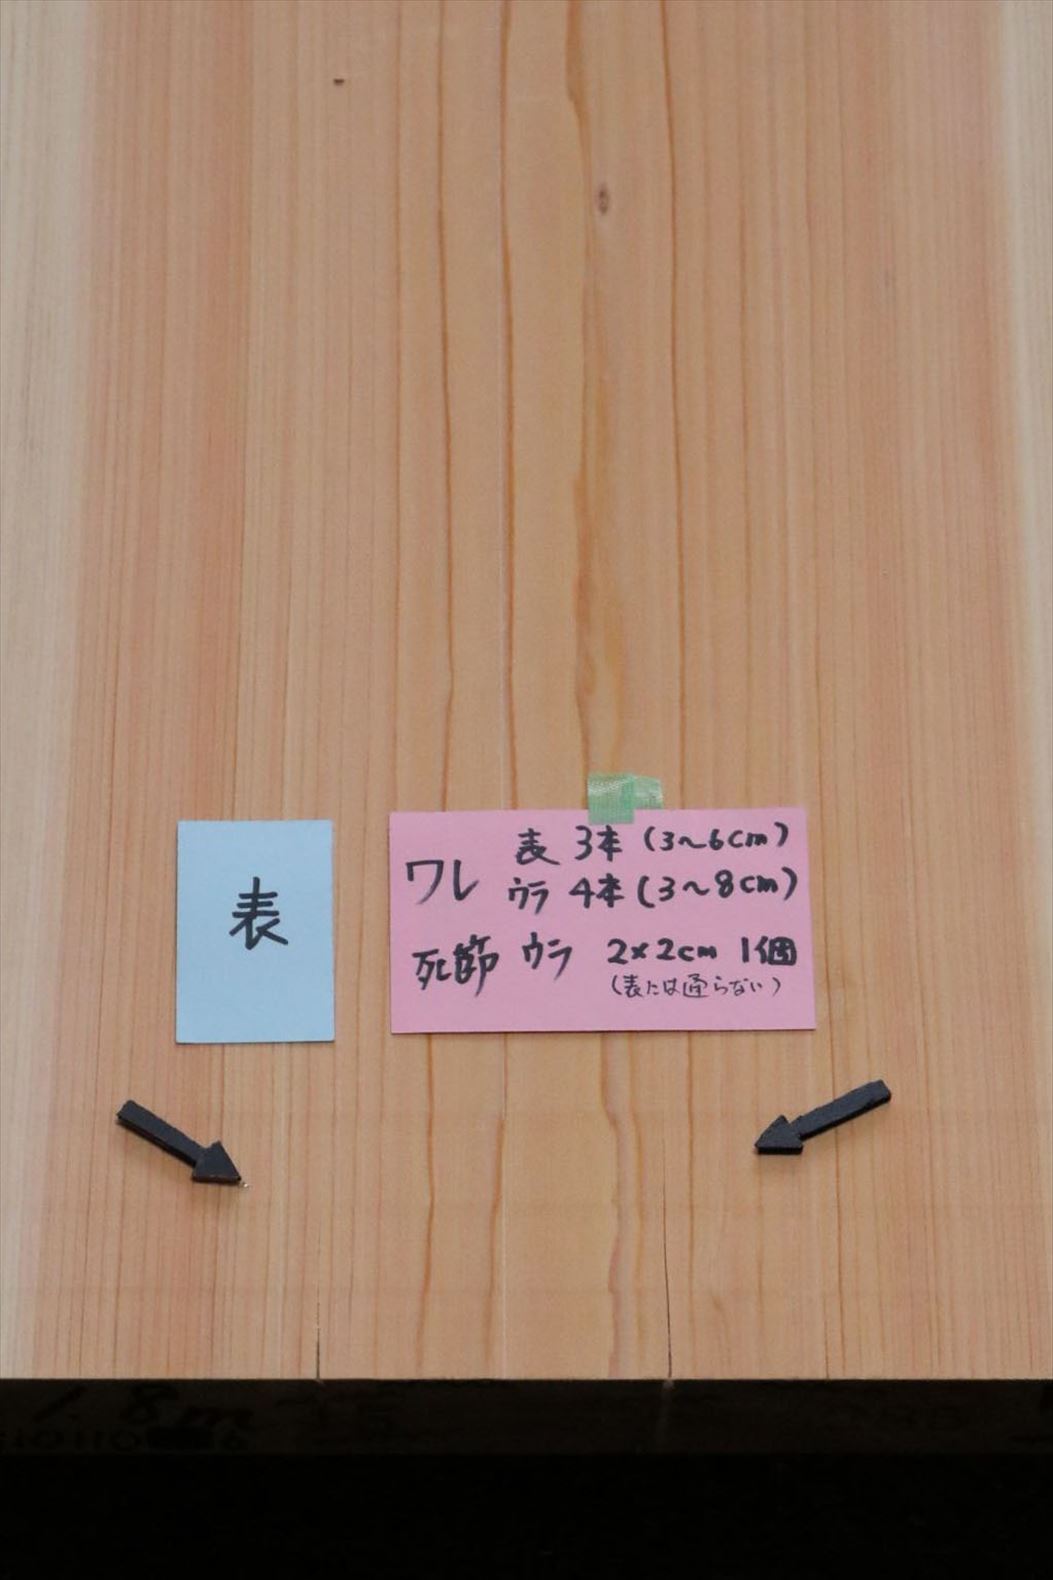 表
ワレ 表 3本 (3~6cm)
ウラ 4本 (3~8cm)
死節 ウラ 2×2cm 1個
(表には通らない)
1.8m